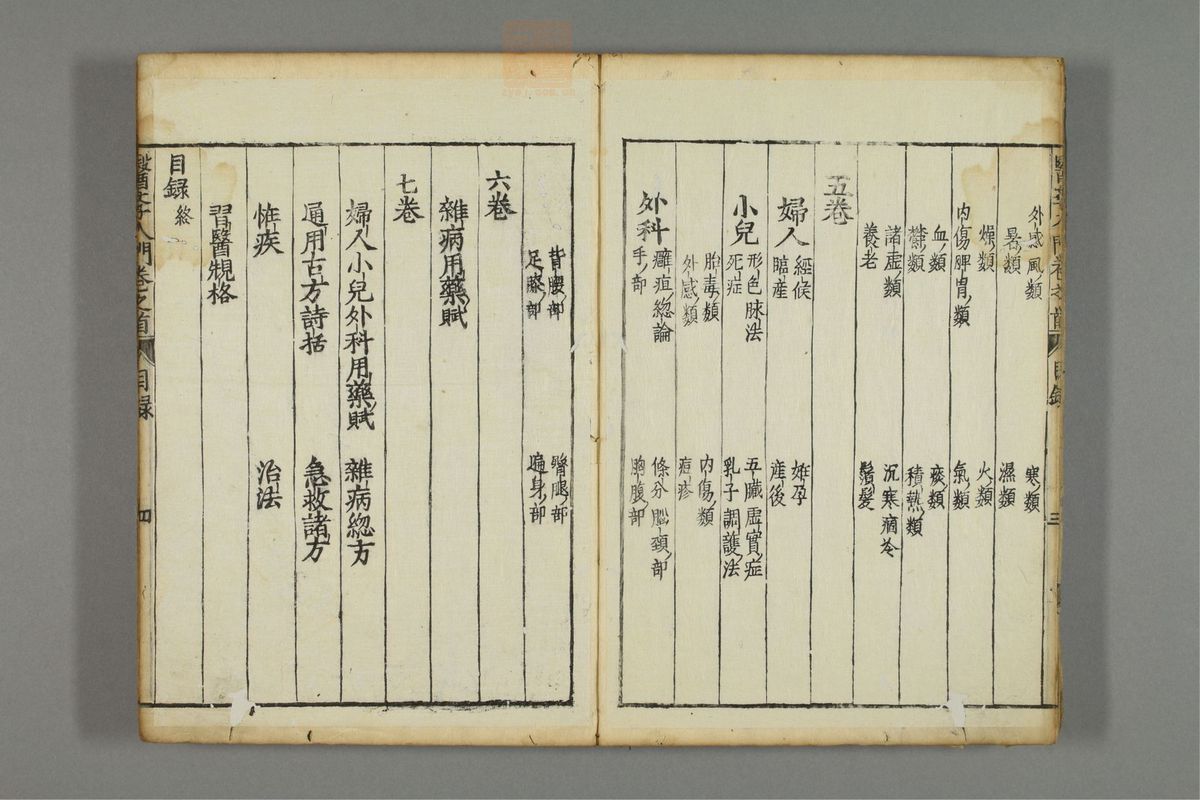 外感風類 寒類
暑類 濕類
燥類 火類
內傷脾胃類 氣類
血類 痰類
欝類 積熱類
諸虛類 沉寒痼冷
養老 鬚髮
五卷
婦人 經候 姙孕
臨産 産後
小兒 形色脉法 五臟虛實症
死症 乳子調護法
胎毒類 內傷類
外感類 痘疹
外科 癰疽緫論 條分腦頸部
手部 胸腹部
三
背腰部 臀腿部
足膝部 遍身部
六卷
雜病用藥賦
七卷
婦人小兒外科用藥賦 雜病緫方
通用古方詩括 急救諸方
恠疾 治法
習醫規格
目録終
醫學入門卷之首 目録 四